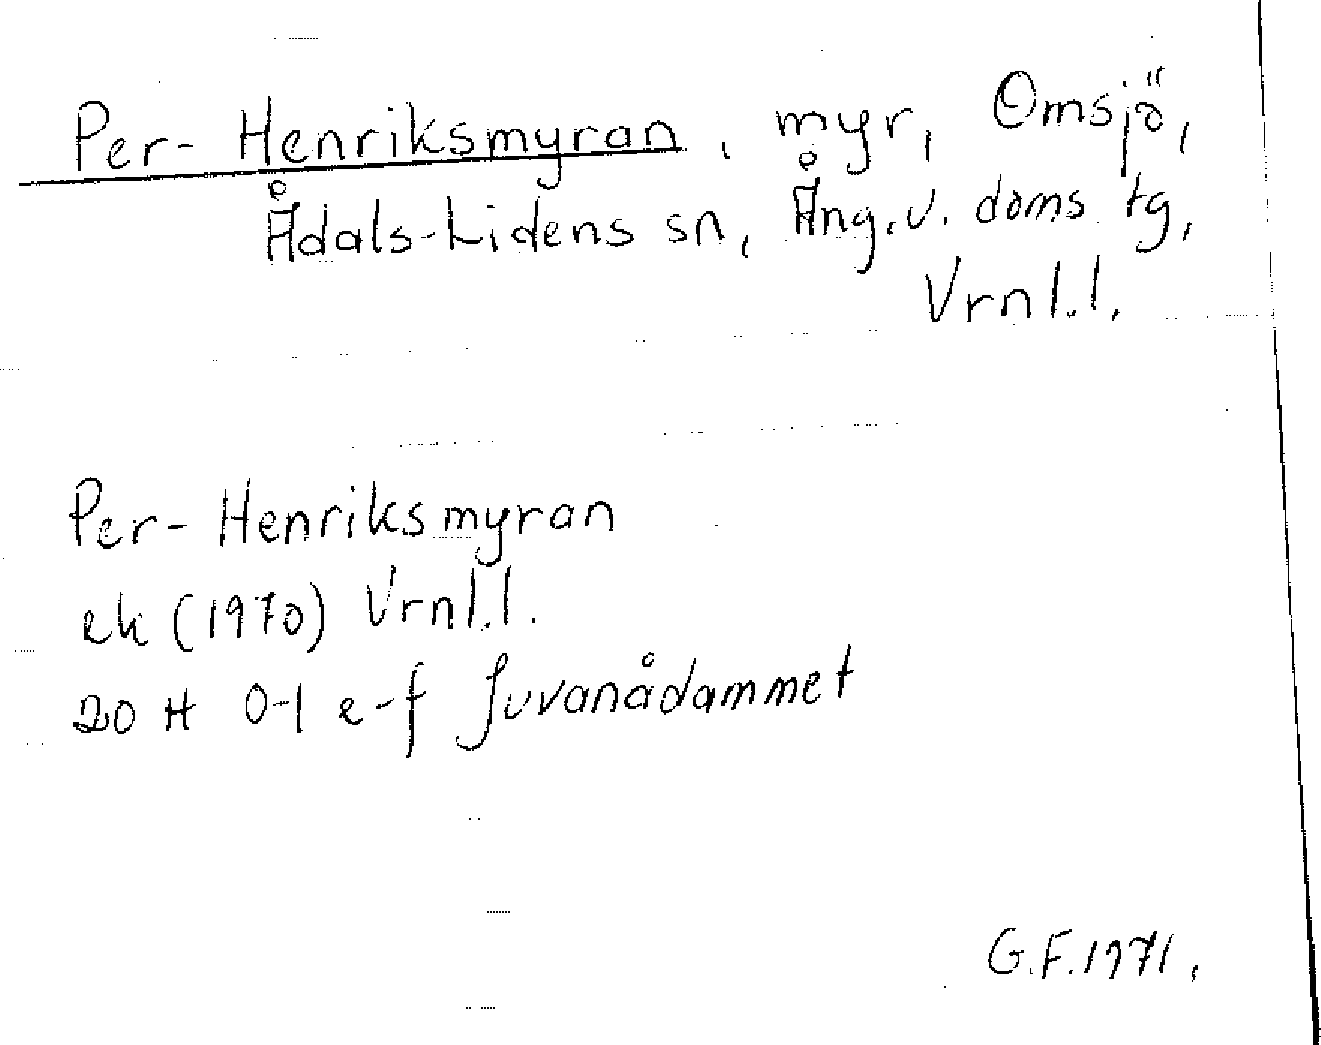 Per-Henriksmyran, myr, Omsjö,
Ådals-Lidens sn, Ång.v. doms.tg,
Vrnl.l.
Per-Henriksmyran
ek (1970) Vrnl.l.
20 H 0-1 e-f Juvanådammet
G.F.1971.